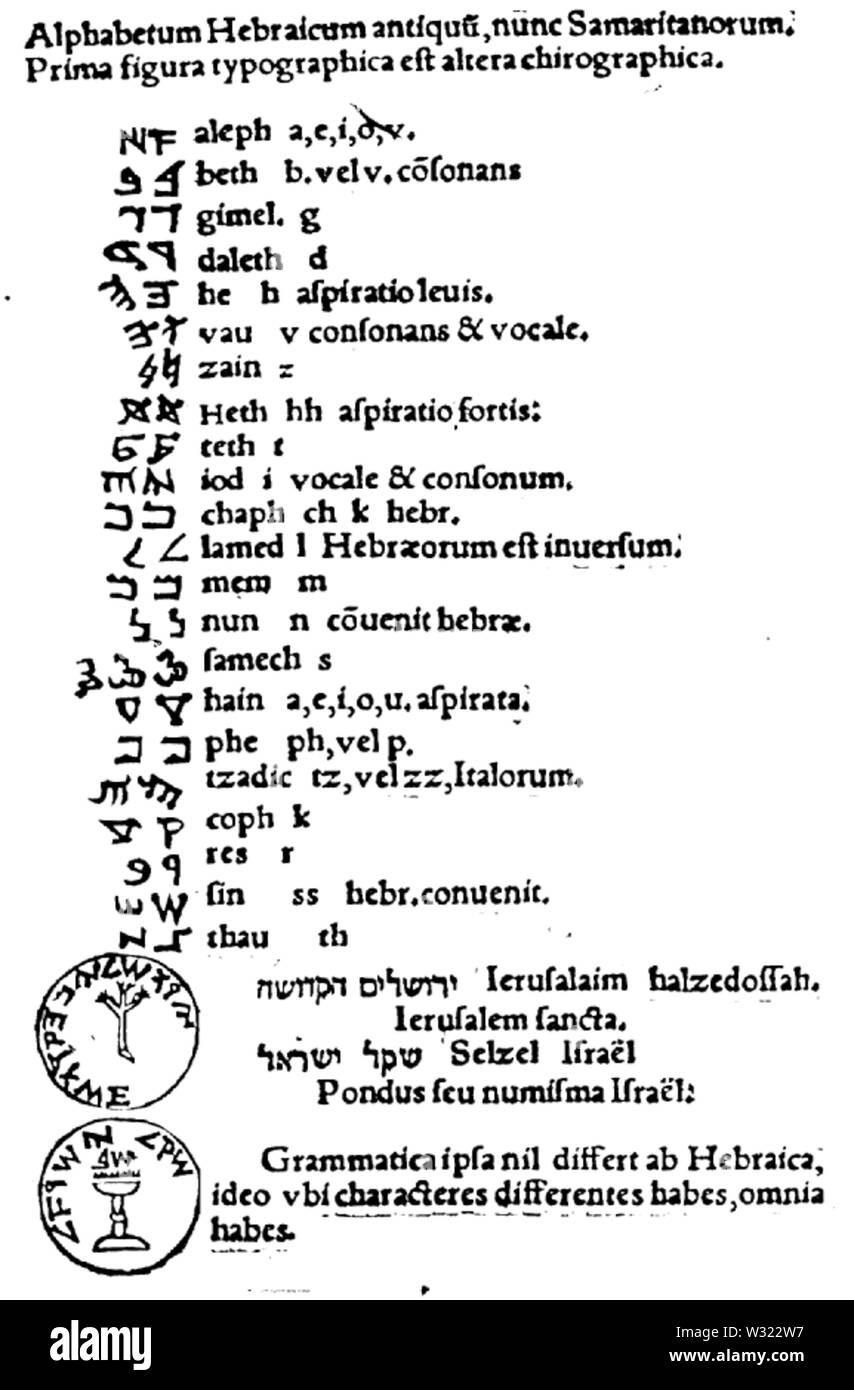 Alphabetum Hebraicum antiquũ, nũnc Samaritanorum.
Prima figura typographica eſt altera chirographica.
aleph a,e,i,o,v.
beth b. vel v. cõſonans
gimel. g
daleth d
he h aſpiratio leuis.
vau v conſonans & vocale.
zain z
Heth hh aſpiratio fortis:
teth t
iod i vocale & conſonum.
chaph ch k hebr.
lamed l Hebræorum eſt inuerſum.
mem m
nun n cõuenit hebræ.
ſamech s
hain a,e,i,o,u. aſpirata.
phe ph, vel p.
tzadic tz, vel zz, Italorum.
coph k
res r
ſin ss hebr. conuenit.
thau th
ירושלים הקדושה Ieruſalaim halzedoſſah.
Ieruſalem ſancta.
שקל ישראל Selzel Iſraël
Pondus ſeu numiſma Iſraël:
Grammatica ipſa nil differt ab Hebraica,
ideo vbi characteres differentes habes, omnia
habes.
alamy
Image ID: W322W7
www.alamy.com